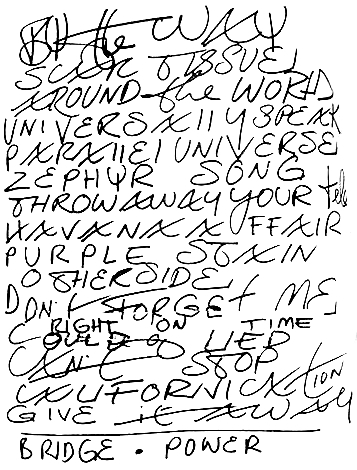 By the WAY
SCAR TISSUE
AROUND the WORLD
UNIVERSALLY SPEAK
PARALLEL UNIVERSE
ZEPHYR SONG
THROW AWAY YOUR tele
HAVANA AFFAIR
PURPLE STAIN
OTHERSIDE
DON't FORGET ME
RIGHT ON TIME
COULD A LIED
CAN't STOP
CALIFORNICATION
GIVE it AWAY
BRIDGE • POWER